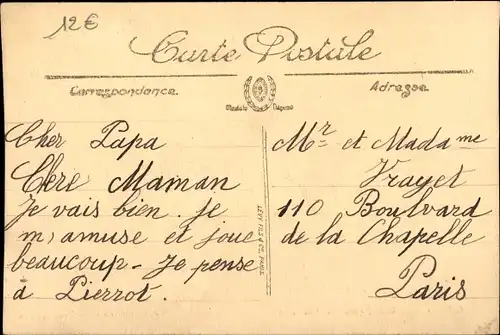 12€
Carte Postale
Correspondance.
Adresse.
Modèle Déposé
Cher Papa
Cère Maman
Je vais bien. je
m, amuse et joue
beaucoup - Je pense
à Pierrot.
LÉVY FILS & Cie, PARIS.
Mr et Madame
Vrayet
110 Boulvard
de la Chapelle
Paris